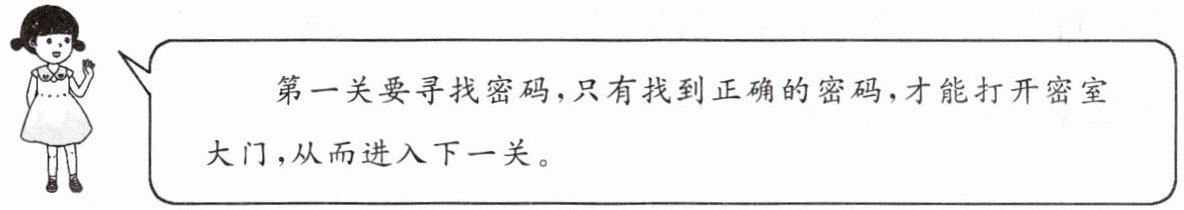 第一关要寻找密码,只有找到正确的密码,才能打开密室
大门,从而进入下一关。